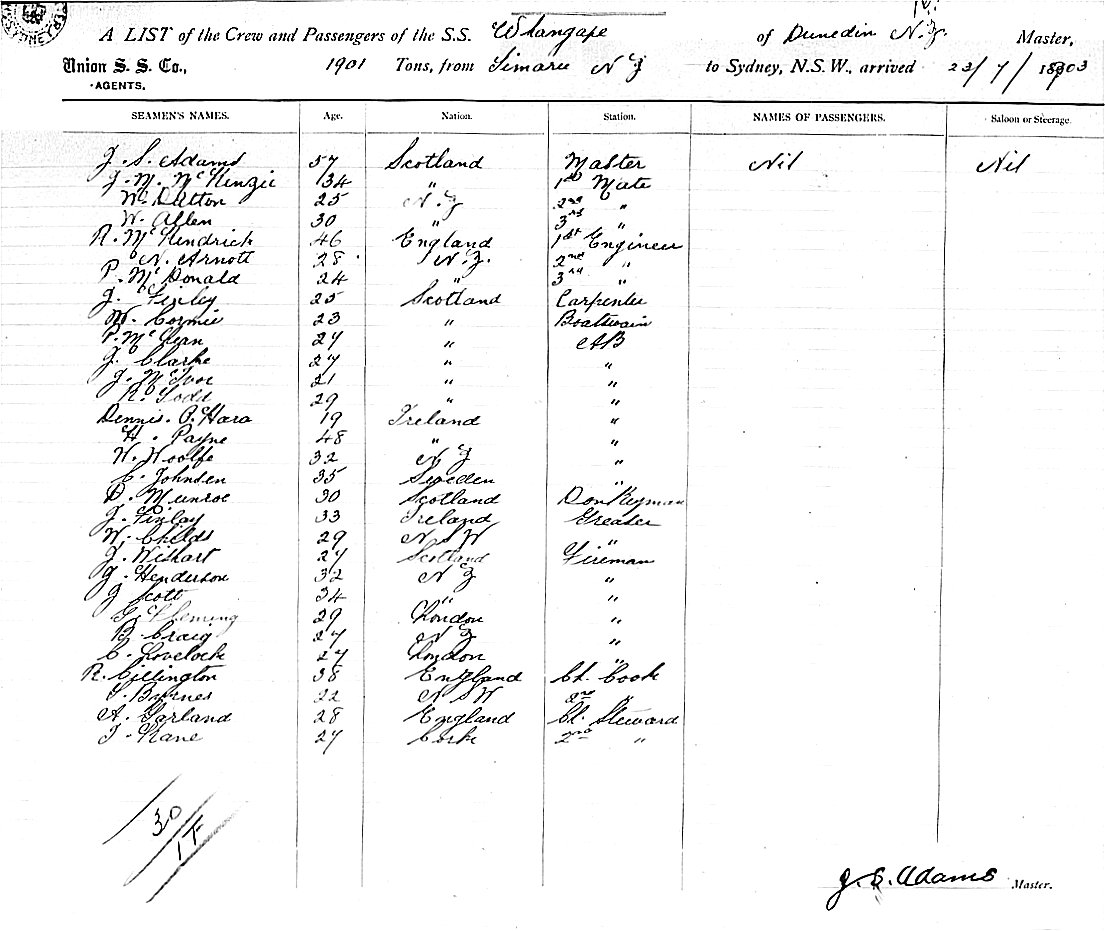 A LIST of the Crew and Passengers of the S.S. Whangape of Dunedin N.Z. Master,
Union S. S. Co., 1901 Tons, from Timaru N Z to Sydney, N.S.W., arrived 23/7/1903
AGENTS.
SEAMEN'S NAMES. Age. Nation. Station. NAMES OF PASSENGERS. Saloon or Steerage.
J. S. Adams 57 Scotland Master Nil Nil
J. M. McKenzie 34 " 1st Mate
W. Dutton 25 N.Z 2nd "
W. Allen 30 " 3rd "
R. McKendrick 46 England 1st Engineer
N. Arnott 28 N.Z. 2nd "
P. McDonald 24 " 3rd "
J. Finley 25 Scotland Carpenter
W. Cormie 23 " Boatswain
P. McLean 27 " AB
J. Clarke 27 " "
J. McIvor 21 " "
R. Todd 29 " "
Dennis. O'Hara 19 Ireland "
H. Payne 48 " "
W. Woolfe 32 N Z "
C. Johnsen 35 Sweden "
D. Munroe 30 Scotland Donkeyman
J. Finlay 33 Ireland Greaser
W. Childs 29 N S W "
J. Wishart 27 Scotland Fireman
J. Henderson 32 N Z "
J Scott 34 " "
G. Fleming 29 London "
B. Craig 27 N Z "
C. Lovelock 27 London "
R. Cillington 38 England Ch. Cook
S. Byrnes 22 N S W 2nd "
A. Garland 28 England Ch. Steward
T. Kane 27 Cork 2nd "
30
1F
J. S. Adams Master.